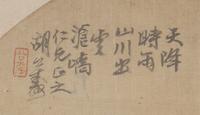 天降
時雨
山川出
雲
滬嶠
仁兄正之
胡公壽